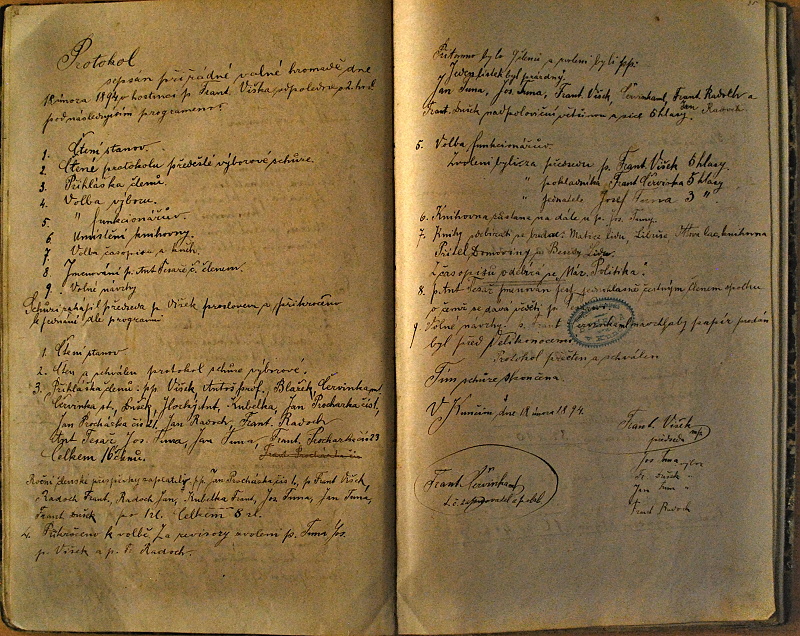 Protokol
sepsán při řádné valné hromadě dne
18 února 1894 v hostinci p. Frant. Víška odpoledne o 2. hod
pod následujícím programem:
1. Čtení stanov.
2. Čtené protokolu předešlé výborové schůze.
3. Přihláška členů.
4. Volba výboru.
5. " funkcionářův.
6. Umístění knihovny.
7. Volba časopisu a knih.
8. Jmenování p. Ant Tesaře č. členem.
9. Volné návrhy
Schůzi zahájil předseda p. Víšek proslovem a přikročeno
k jednání dle programu
1. Čtení stanov
2. Čten a schválen protokol schůze výborové.
3. Přihláška členů: pp. Víšek, Antoš prof., Blažek, Červinka ml
Červinka st, Dušek, Kubelka, Jan Procházka čís 1,
Jan Procházka čís 21, Jan Radoch, Frant. Radoch
Ant Tesař, Jos. Tuma, Jan Tuma, Frant. Procházka čís 23
Celkem 16 členů.
Roční členské příspěvky zaplatily pp. Jan Procházka čís 1, p. Frant Víšek,
Radoch Frant, Radoch Jan, Kubelka Frant, Jos Tuma, Jan Tuma,
Frant Dušek po 1 zl. Celkem 8 zl.
4. Přikročeno k volbě. Za revisory zvoleni p. Tuma Jos.
p. Víšek a p. F. Radoch.
Přítomno bylo 9 členů a zvoleni byli pp:
Jeden lístek byl prázdný.
Jan Tuma, Jos. Tuma, Frant. Víšek, Červinka ml, Frant Radoch a
Frant. Dušek nadpoloviční většinou a sice 5 hlasy.
5. Volba funkcionářův.
Zvoleni byli za předsedu p. Frant Víšek 5 hlasy
" pokladníka Frant Červinka 5 hlasy
" jednatele Josef Tuma 3 "
6. Knihovna zůstane na dále u p. Jos. Tumy.
7. Knihy odebírati se budou: Matice lidu, Libuše, knihovna
Přítel Domoviny, Besedy Lidu.
Z časopisů odebírá se "Nár. Politika".
8. p. Ant Tesař jmenován jest jednohlasně čestným členem spolku
o čemž se dává věděti
9. Volné návrhy: Červinka ml papír prodán
byl před Velikonocemi
Protokol přečten a schválen
Tím schůze skončena
V dne 18 února 1894.
Frant. Víšek
předseda
Jos. Tuma
Fr. Dušek "
Jan Tuma "
Frant Radoch
Frant Červinka ml